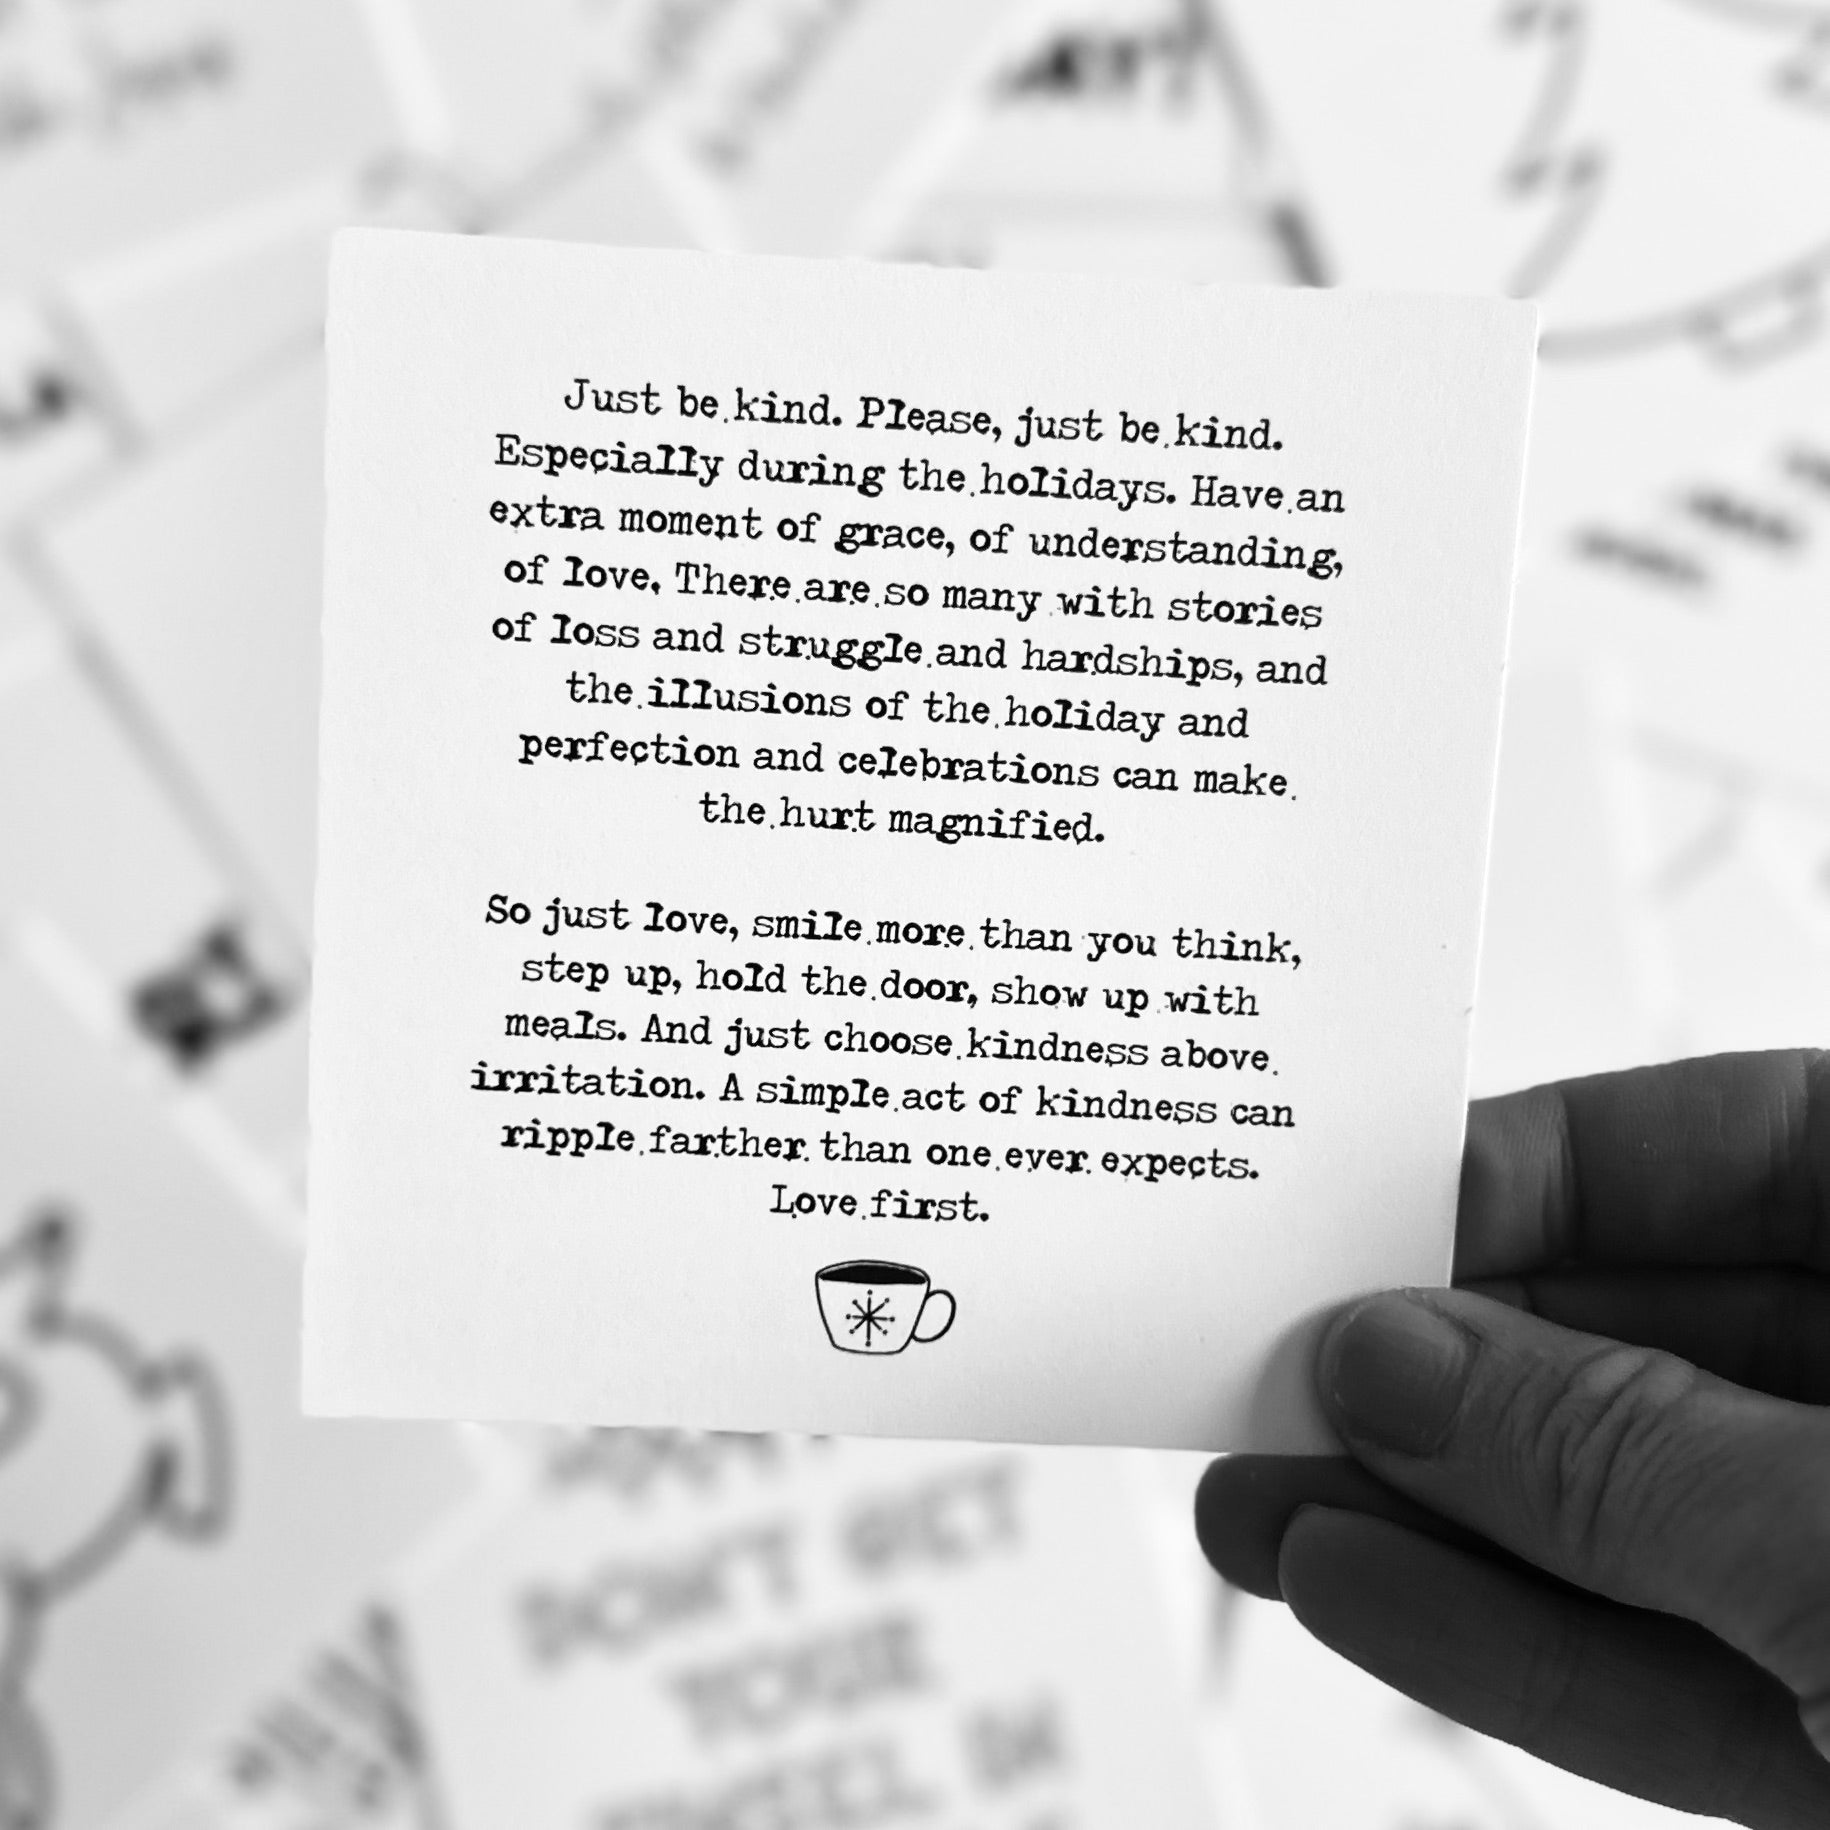 Just be kind. Please, just be kind.
Especially during the holidays. Have an
extra moment of grace, of understanding,
of love. There are so many with stories
of loss and struggle and hardships, and
the illusions of the holiday and
perfection and celebrations can make
the hurt magnified.
So just love, smile more than you think,
step up, hold the door, show up with
meals. And just choose kindness above
irritation. A simple act of kindness can
ripple farther than one ever expects.
Love first.
DON'T GET
YOUR
TINSEL IN